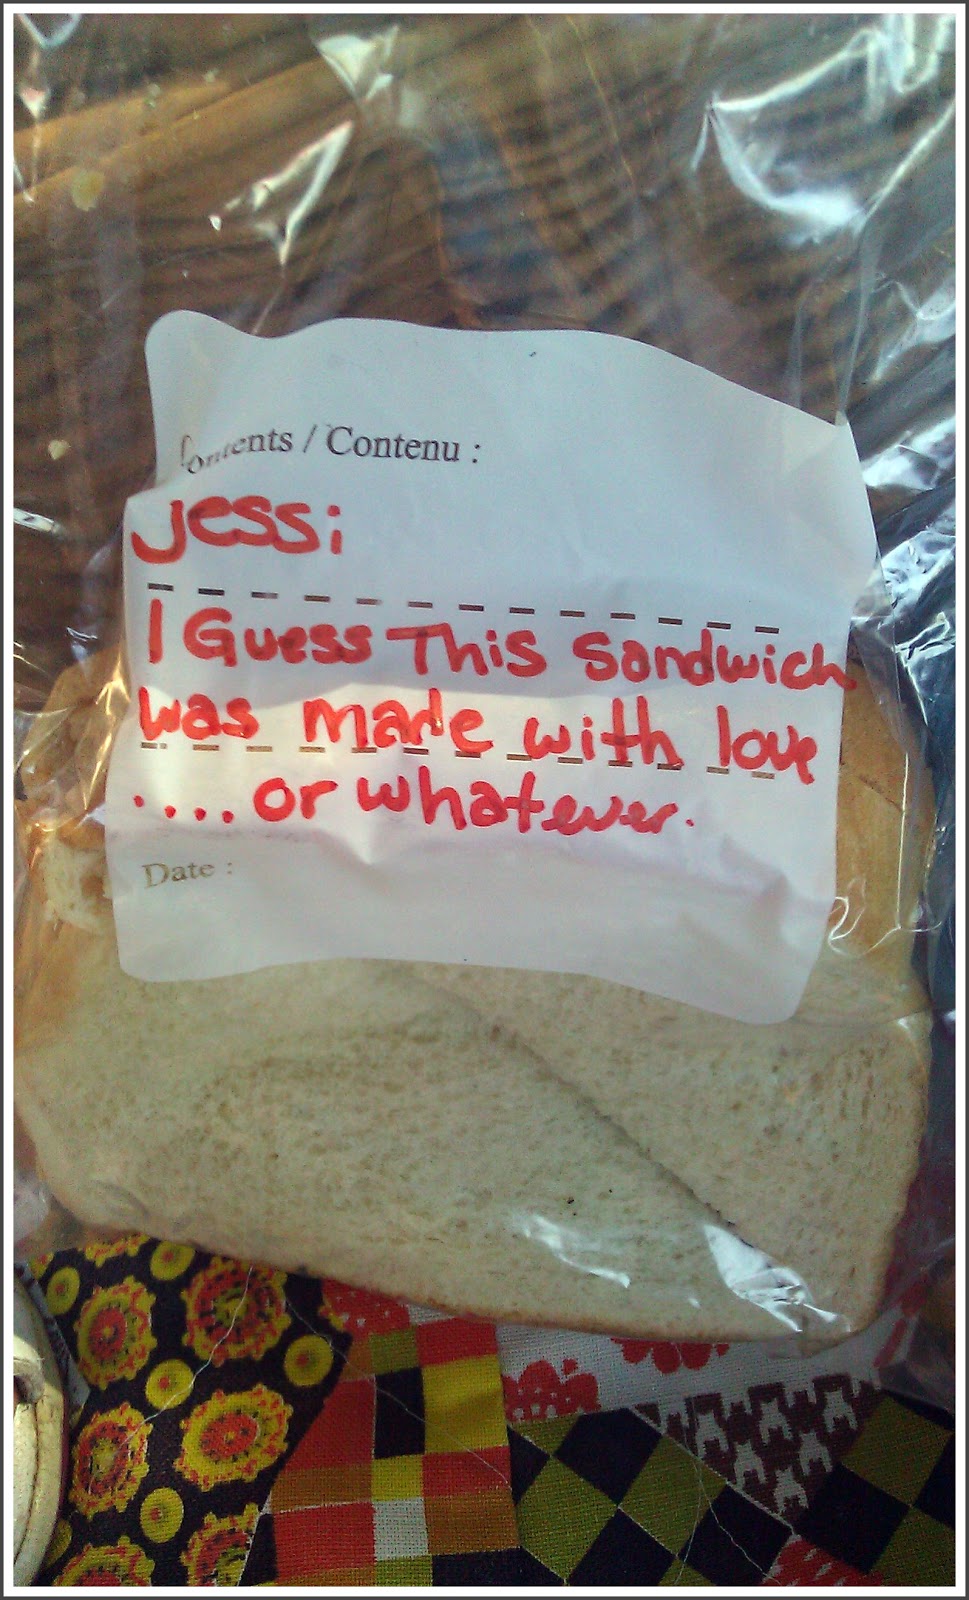 Contents / Contenu :
Jessi
I Guess This Sandwich
was made with love
.... or whatever.
Date :